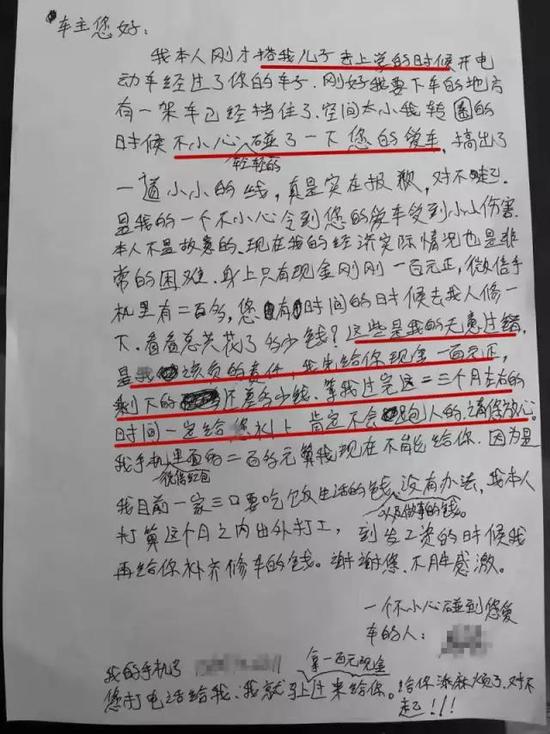 车主您好:
我本人刚才搭我儿子去上学的时候开电
动车经过了你的车子.刚好我要下车的地方
有一架车已经挡住了.空间太小我转圈的
时候不小心碰了一下您的爱车,搞出了
轻轻的
一道小小的线,真是实在报歉,对不起.
是我的一个不小心令到您的爱车受到小小伤害.
本人不是故意的.现在我的经济实际情况也是非
常的困难.身上只有现金刚刚一百元正,微信手
机里有二百多,您有时间的日时候去找人修一
下.看看总共花了多少钱?这些是我的无意过错.
是我该负的责任,我先给你现金一百元正,
剩下的还差多少钱.等我过完这二三个月左右的
时间一定给你补上肯定不会跑人的.请你放心.
我手机里面的二百多元等我现在不能给你.因为是
微信红包
我目前一家三口要吃饭生活的钱.没有办法,我本人
以及做事的钱.
打算这个月之内出外打工,到发工资的时候我
再给你补齐修车的钱。谢谢您.不胜感激。
一个不小心碰到您爱
车的人:
我的手机号
拿一百元现金
您打电话给我.我就马上过来给你.给你添麻烦了.对不
起!!!